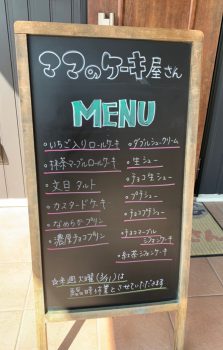 ママのケーキ屋さん
MENU
・いちご入りロールケーキ
・抹茶マーブルロールケーキ
・文旦タルト
・カスタードケーキ
・なめらかプリン
・濃厚チョコプリン
・ダブルシュークリーム
・生シュー
・チョコ生シュー
・プチシュー
・チョコプチシュー
・チョコマーブル
シフォンケーキ
・紅茶シフォンケーキ
☆来週火曜(3/31)は
臨時休業とさせていただきます